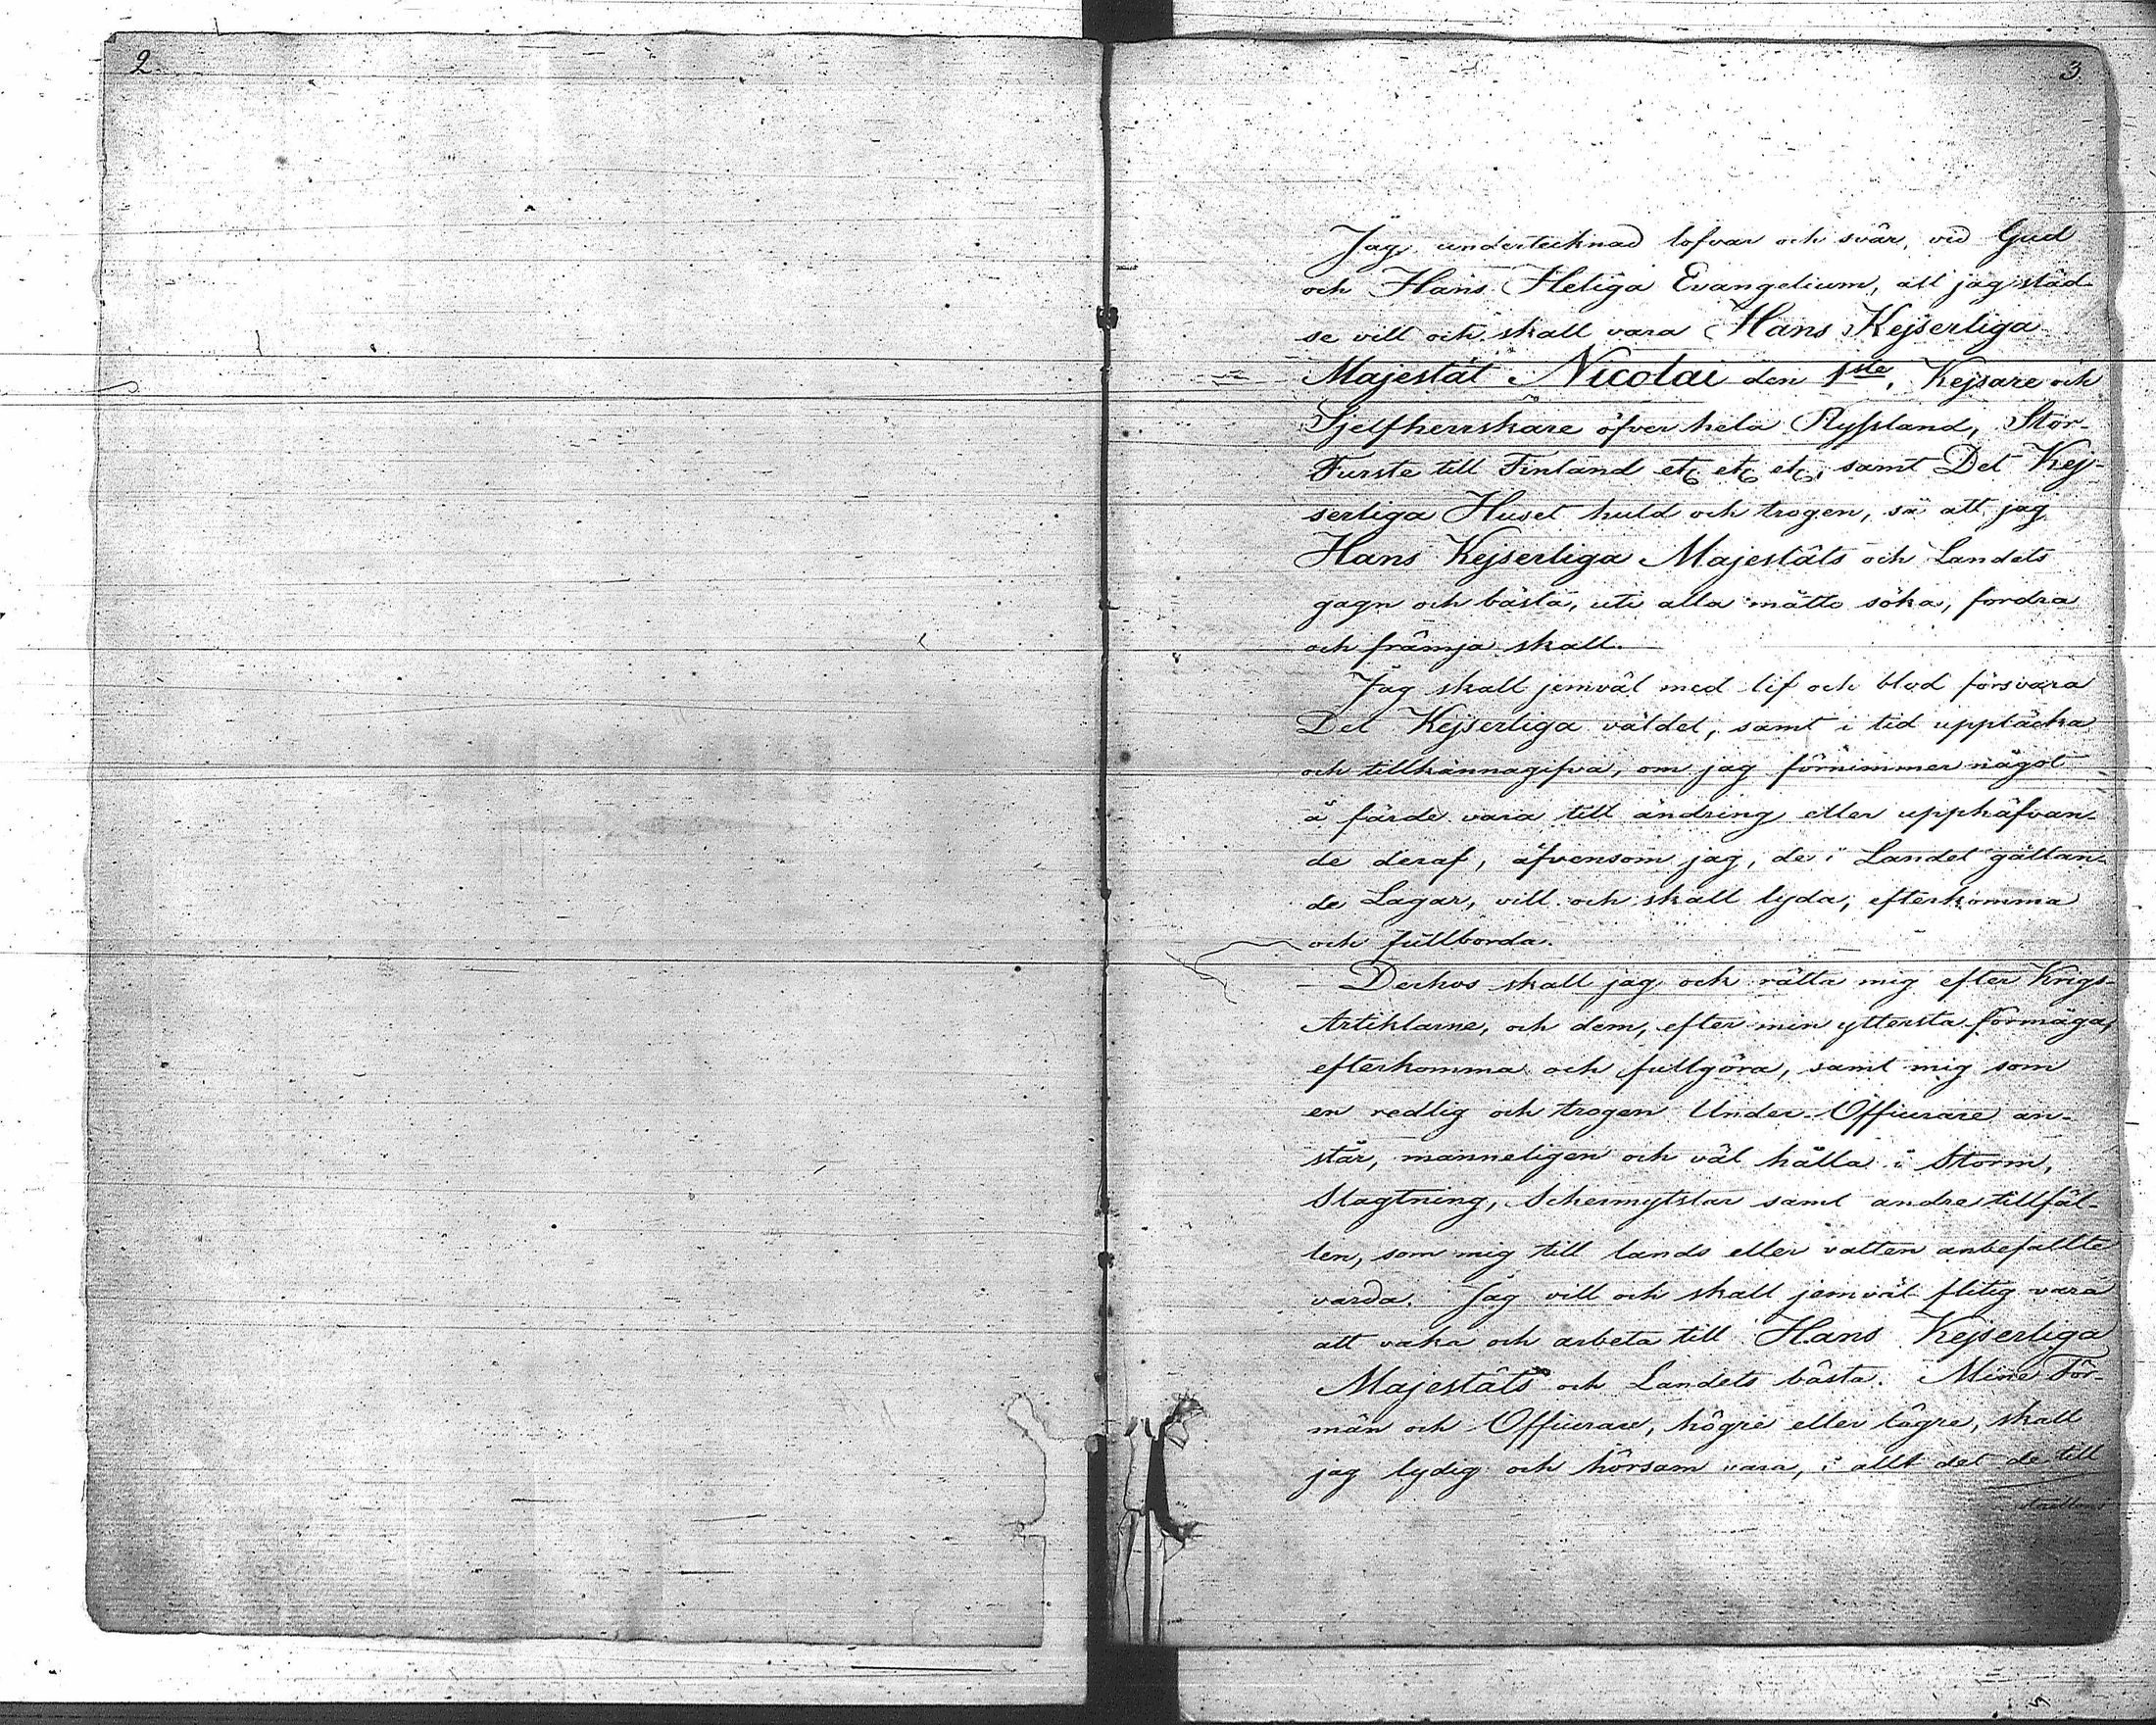 2
3
Jag, undertecknad lofvar och svär, vid Gud
och Hans Heliga Evangelium, att jag städ-
se vill och skall vara Hans Kejserliga
Majestät Nicolai den 1ste, Kejsare och
Sjelfherrskare öfver hela Ryssland, Stor-
Furste till Finland etc etc etc, samt Det Kej-
serliga Huset huld och trogen, så att jag
Hans Kejserliga Majestäts och Landets
gagn och bästa, uti alla måtto söka, fordra
och främja skall.
Jag skall jemväl med lif och blod försvara
Det Kejserliga väldet, samt i tid upptäcka
och tillkännagifva, om jag förnimmer något
å färde vara till ändring eller upphäfvan-
de deraf, äfvensom jag, de i Landet gällan-
de Lagar, vill och skall lyda, efterkomma
och fullborda.
Derhos skall jag ock rätta mig efter Krigs-
Artiklarne, och dem, efter min yttersta förmåga,
efterkomma och fullgöra, samt mig som
en redlig och trogen Under-Officerare an-
står, manneligen och väl hålla i Storm,
Slagtning, Schermytslar samt andre tillfäl-
len, som mig till lands eller vatten anbefallte
varda. Jag vill och skall jemväl flitig vara
att vaka och arbeta till Hans Kejserliga
Majestäts och Landets bästa. Mine För-
män och Officerare, högre eller lägre, skall
jag lydig och hörsam vara, i allt det de till